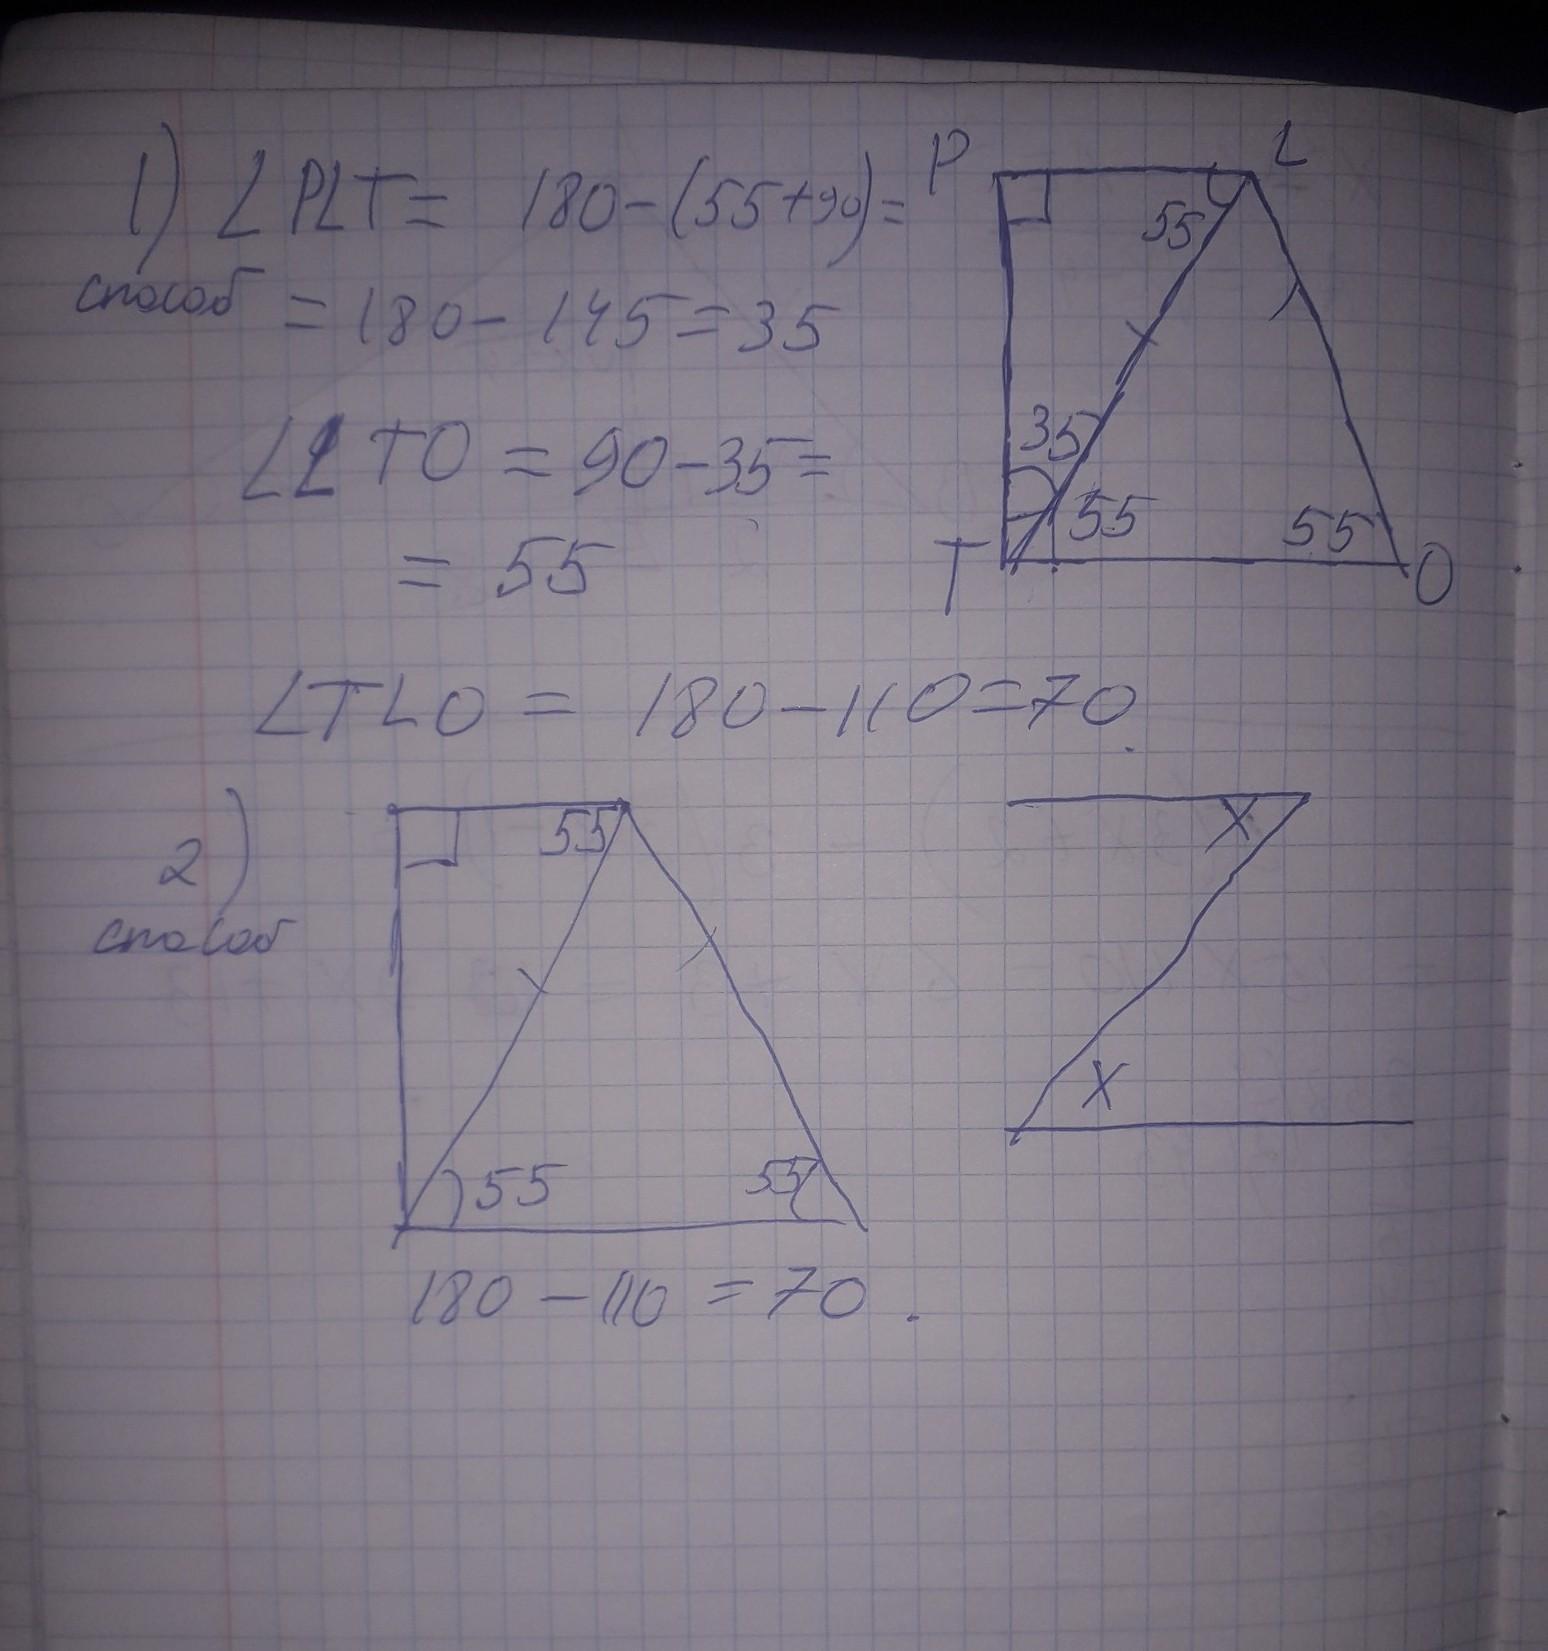 1) ∠PLT = 180-(55+90)=
способ = 180- 145=35
∠LTO = 90-35=
= 55
∠TLO = 180-110=70.
P
L
55
35
55
55
T
O
2)
способ
55
55
55
X
X
180-110 = 70.